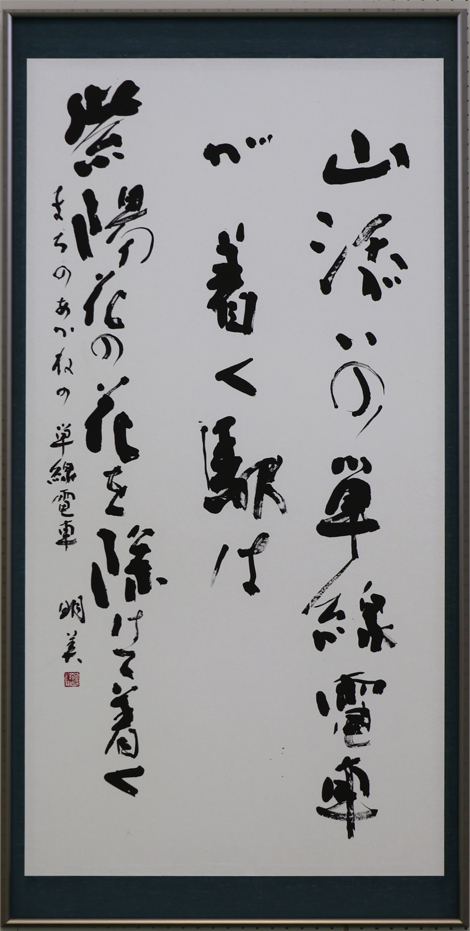 山添いの単線電車
が着く駅は
紫陽花の花を除けて着く
まちの の 単線電車 明美